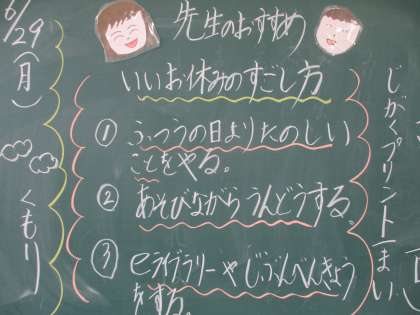 6/29(月)
くもり
先生のおすすめ
いいお休みのすごし方
① ふつうの日よりたのしい
ことをやる。
② あそびながらうんどうする。
③ eライブラリーやじぶんべんきょう
をする。
じがくプリント1まい、